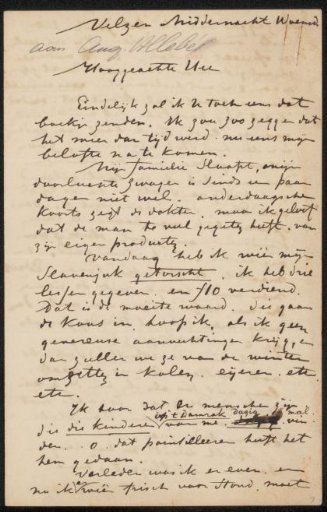 Velzen Middernacht Woensd
aan Aug Allebé
Hooggeachte Heer
Eindelijk zal ik U toch eens dat
boekje zenden. Ik zou zoo zeggen dat
het meer dan tijd werd nu eens mijn
belofte na te komen.
Mijn familie slaapt, mijn
doorluchte zwager is sinds een paar
dagen niet wel. anderdaagsche
koorts zegt de dokter. maar ik geloof
dat de man te veel gegeten heeft van
zijn eigen producten.
Vandaag heb ik weer mijn
slavenjuk getorscht. ik heb drie
lessen gegeven en f10 verdiend.
Dat is de moeite waard. die gaan
de kous in, hoop ik, als ik geen
genereuse aanvechtingen krijg, en
dan zullen we ze van de winter
omzetten in kolen. eijeren. etc
etc.
Ik hoor dat er menschen zijn
uit Damrak
die die kinderen van me mal
vin
den. o. dat pointilleeren heeft het
hem gedaan.
Verleden was ik er even, en
nu ik weer frisch voor stond, moet